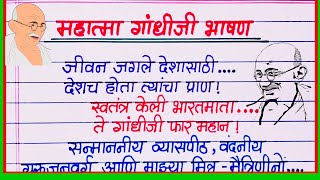 महात्मा गांधीजी भाषण
जीवन जगले देशासाठी....
देशच होता त्यांचा प्राण!
स्वतंत्र केली भारतमाता....
ते गांधीजी फार महान!
सन्माननीय व्यासपीठ, वदनीय
गुरुजनवर्ग आणि माझ्या मित्र-मैत्रिणींनो....